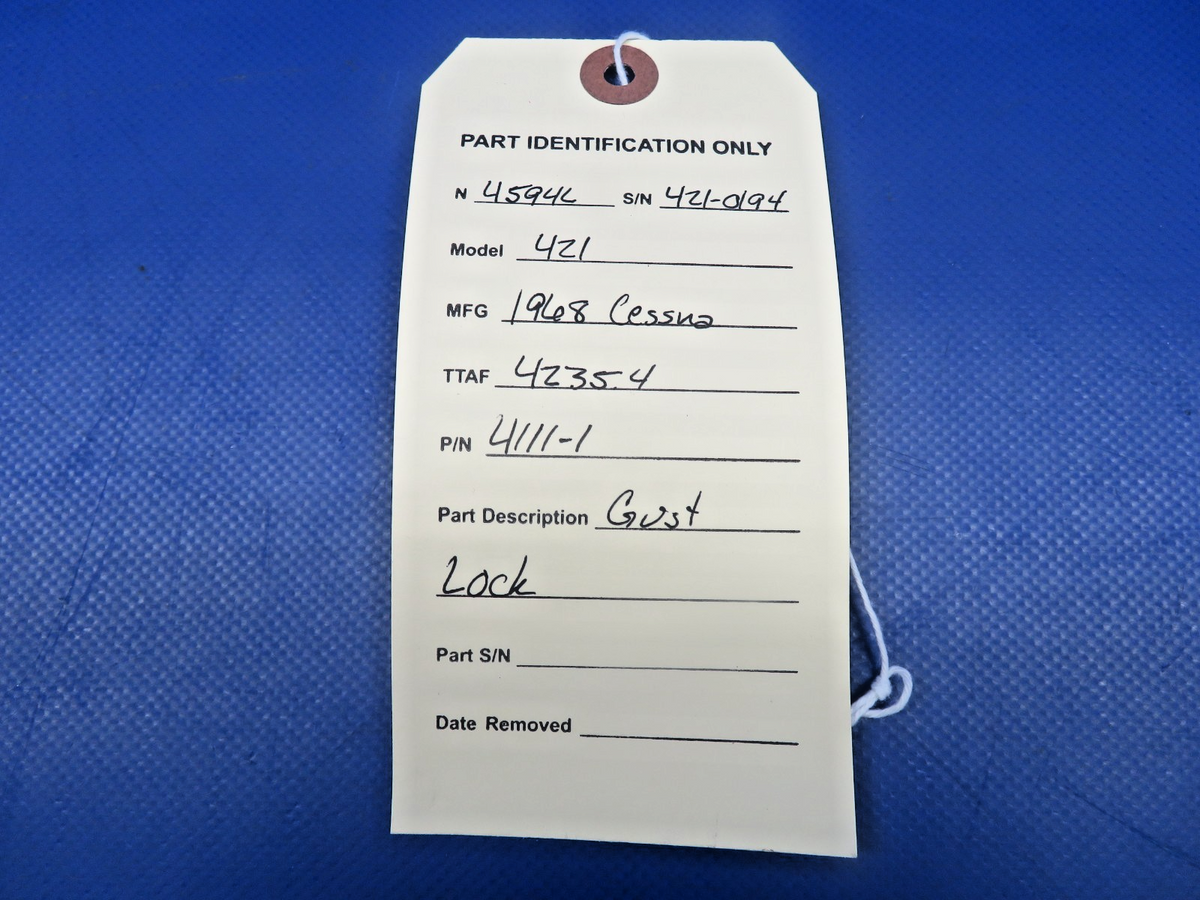 PART IDENTIFICATION ONLY
N 4594L S/N 421-0194
Model 421
MFG 1968 Cessna
TTAF 4235.4
P/N 4111-1
Part Description Gust
Lock
Part S/N
Date Removed